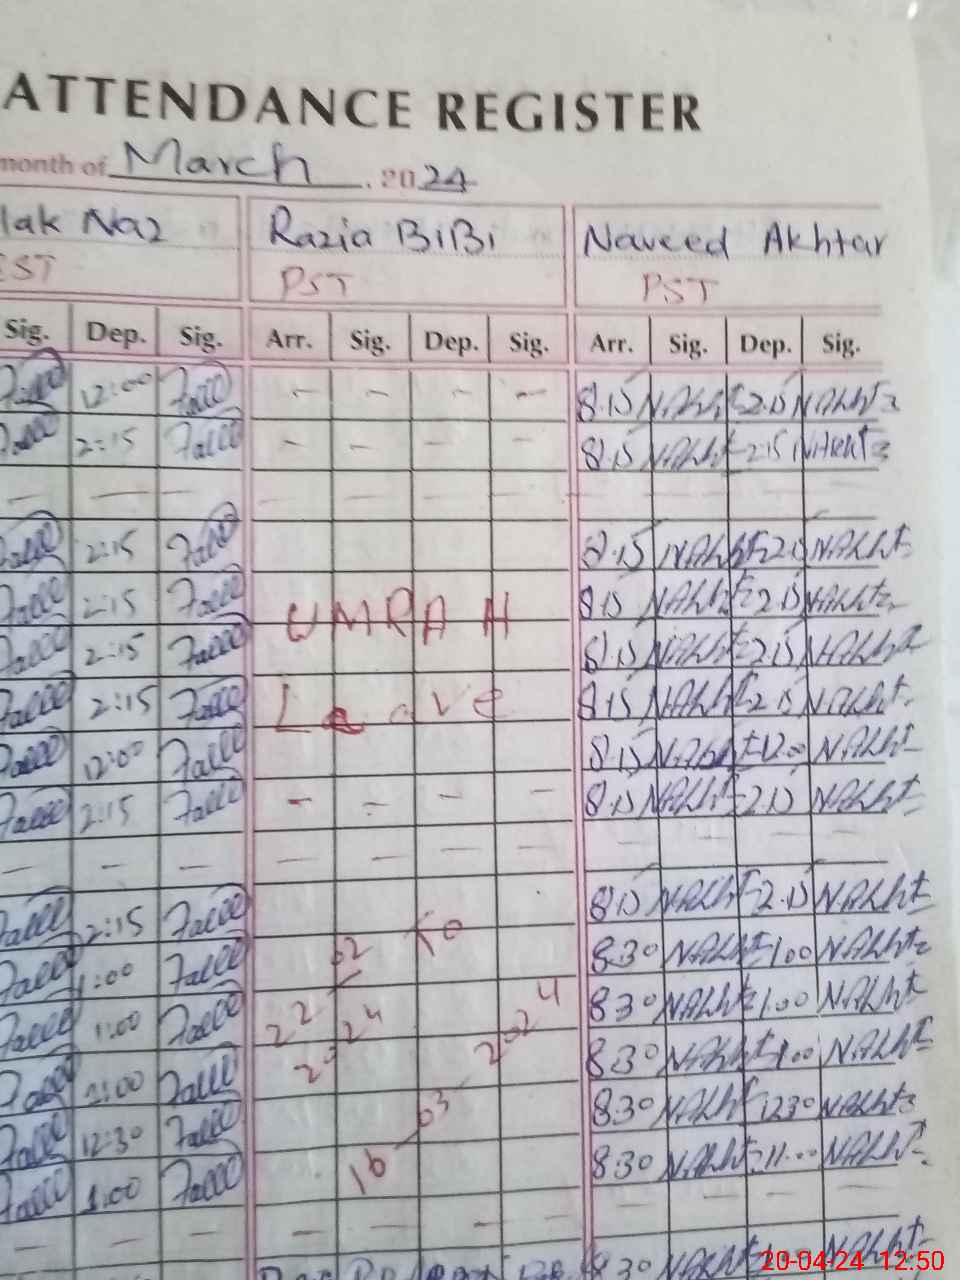 ATTENDANCE REGISTER
month of March . 2024
lak Naz Razia BiBi Naveed Akhtar
EST PST PST
Sig. Dep. Sig. Arr. Sig. Dep. Sig. Arr. Sig. Dep. Sig.
12:00 - - - - 8.15 NAkht 2.15 NAkht
2:15 - - - - 8.15 NAkht 2.15 NAkht
- - - - - - - - - - -
2:15 8.15 NAkht 2.15 NAkht
2:15 UMRAH 8.15 NAkht 2.15 NAkht
2:15 8.15 NAkht 2.15 NAkht
2:15 Leave 8.15 NAkht 2.15 NAkht
12:00 8.15 NAkht 12.00 NAkht
2:15 - - - - 8.15 NAkht 2.15 NAkht
- - - - - - - - - - -
2:15 8.15 NAkht 2.15 NAkht
1:00 02 to 8.30 NAkht 1.00 NAkht
1:00 22 2024 2024 8.30 NAkht 1.00 NAkht
1:00 8.30 NAkht 1.00 NAkht
12:30 03 8.30 NAkht 12.30 NAkht
1:00 16 8.30 NAkht 11.00 NAkht
- - - - - - - - - - -
8.30 NAkht NAkht
20-04-24 12:50